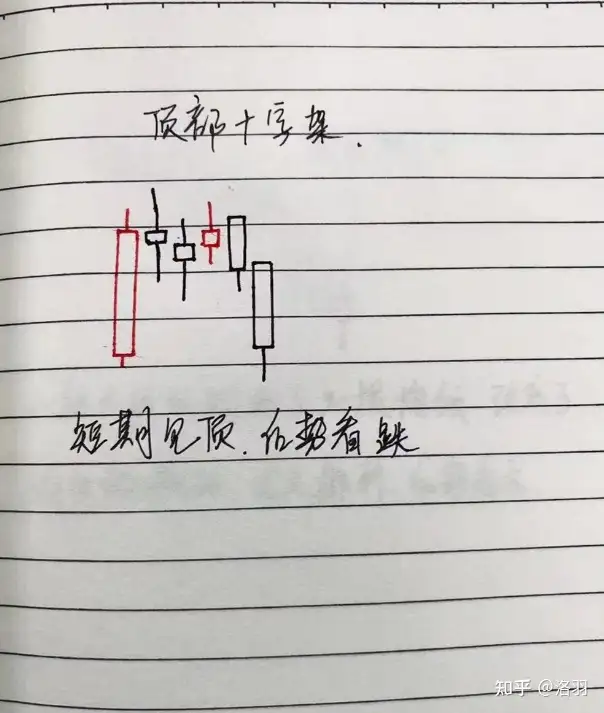 顶部十字架.
短期见顶.后势看跌
知乎 @洛羽